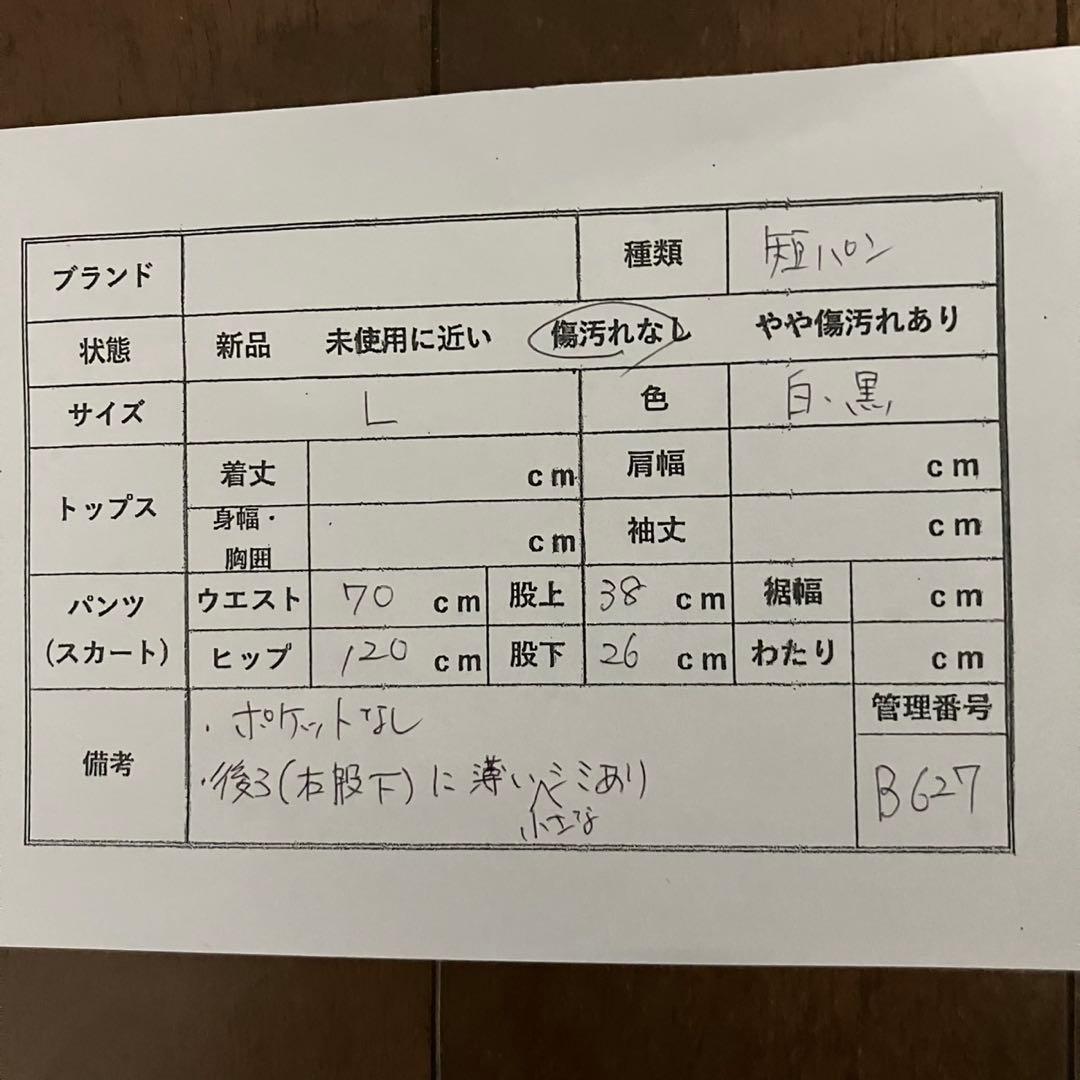 ブランド 種類 短パン
状態 新品 未使用に近い 傷汚れなし やや傷汚れあり
サイズ L 色 白・黒
トップス 着丈 cm 肩幅 cm
身幅・胸囲 cm 袖丈 cm
パンツ(スカート) ウエスト 70 cm 股上 38 cm 裾幅 cm
ヒップ 120 cm 股下 26 cm わたり cm
備考 ・ポケットなし 管理番号
・後ろ(右股下)に薄い小さなシミあり B627